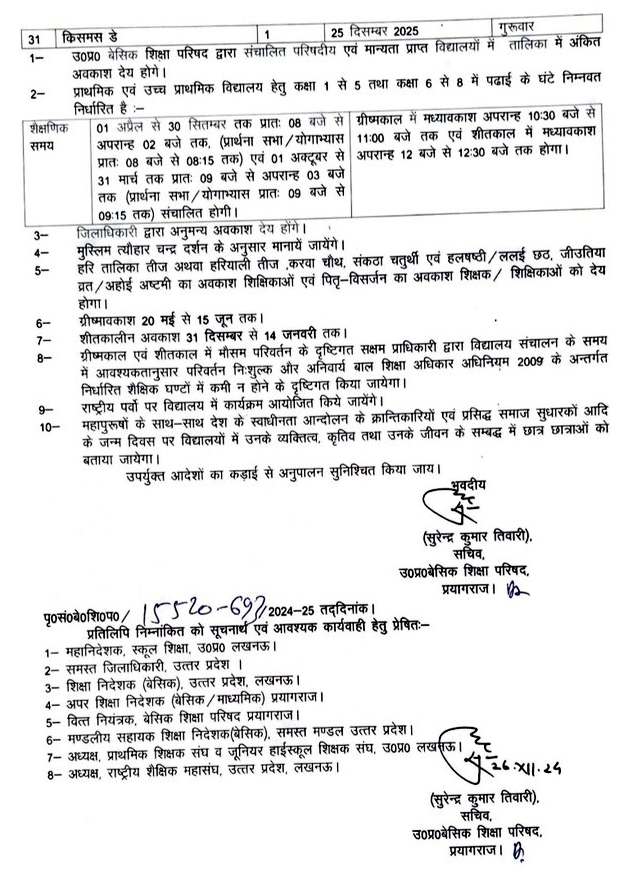 31 किसमस डे 1 25 दिसम्बर 2025 गुरूवार
1– उ0प्र0 बेसिक शिक्षा परिषद द्वारा संचालित परिषदीय एवं मान्यता प्राप्त विद्यालयों में तालिका में अंकित
अवकाश देय होगे।
2– प्राथमिक एवं उच्च प्राथमिक विद्यालय हेतु कक्षा 1 से 5 तथा कक्षा 6 से 8 में पढाई के घंटे निम्नवत
निर्धारित है :–
शैक्षणिक
समय
01 अप्रैल से 30 सितम्बर तक प्रातः 08 बजे से
अपरान्ह 02 बजे तक, (प्रार्थना सभा/योगाभ्यास
प्रातः 08 बजे से 08:15 तक) एवं 01 अक्टूबर से
31 मार्च तक प्रातः 09 बजे से अपरान्ह 03 बजे
तक (प्रार्थना सभा/योगाभ्यास प्रातः 09 बजे से
09:15 तक) संचालित होगी।
ग्रीष्मकाल में मध्यावकाश अपरान्ह 10:30 बजे से
11:00 बजे तक एवं शीतकाल में मध्यावकाश
अपरान्ह 12 बजे से 12:30 बजे तक होगा।
3– जिलाधिकारी द्वारा अनुमन्य अवकाश देय होंगे।
4– मुस्लिम त्यौहार चन्द्र दर्शन के अनुसार मानायें जायेंगे।
5– हरि तालिका तीज अथवा हरियाली तीज ,करवा चौथ, संकठा चतुर्थी एवं हलषष्ठी/ललई छठ, जीउतिया
व्रत/अहोई अष्टमी का अवकाश शिक्षिकाओं एवं पितृ–विसर्जन का अवकाश शिक्षक/ शिक्षिकाओं को देय
होगा।
6– ग्रीष्मावकाश 20 मई से 15 जून तक।
7– शीतकालीन अवकाश 31 दिसम्बर से 14 जनवरी तक।
8– ग्रीष्मकाल एवं शीतकाल में मौसम परिवर्तन के दृष्टिगत सक्षम प्राधिकारी द्वारा विद्यालय संचालन के समय
में आवश्यकतानुसार परिवर्तन निःशुल्क और अनिवार्य बाल शिक्षा अधिकार अधिनियम 2009 के अन्तर्गत
निर्धारित शैक्षिक घण्टों में कमी न होने के दृष्टिगत किया जायेगा।
9– राष्ट्रीय पर्वो पर विद्यालय में कार्यक्रम आयोजित किये जायेंगे।
10– महापुरूषों के साथ–साथ देश के स्वाधीनता आन्दोलन के क्रान्तिकारियों एवं प्रसिद्ध समाज सुधारकों आदि
के जन्म दिवस पर विद्यालयों में उनके व्यक्तित्व, कृतिव तथा उनके जीवन के सम्बद्ध में छात्र छात्राओं को
बताया जायेगा।
उपर्युक्त आदेशों का कड़ाई से अनुपालन सुनिश्चित किया जाय।
भवदीय
(सुरेन्द्र कुमार तिवारी),
सचिव,
उ0प्र0बेसिक शिक्षा परिषद,
प्रयागराज।
पृ0सं0बे0शि0प0/ 15520-697/2024-25 तद्दिनांक।
प्रतिलिपि निम्नांकित को सूचनार्थ एवं आवश्यक कार्यवाही हेतु प्रेषितः–
1– महानिदेशक, स्कूल शिक्षा, उ0प्र0 लखनऊ।
2– समस्त जिलाधिकारी, उत्तर प्रदेश ।
3– शिक्षा निदेशक (बेसिक), उत्तर प्रदेश, लखनऊ।
4– अपर शिक्षा निदेशक (बेसिक/माध्यमिक) प्रयागराज।
5– वित्त नियंत्रक, बेसिक शिक्षा परिषद प्रयागराज।
6– मण्डलीय सहायक शिक्षा निदेशक(बेसिक), समस्त मण्डल उत्तर प्रदेश।
7– अध्यक्ष, प्राथमिक शिक्षक संघ व जूनियर हाईस्कूल शिक्षक संघ, उ0प्र0 लखनऊ।
8– अध्यक्ष, राष्ट्रीय शैक्षिक महासंघ, उत्तर प्रदेश, लखनऊ।
26.XII.24
(सुरेन्द्र कुमार तिवारी),
सचिव,
उ0प्र0बेसिक शिक्षा परिषद,
प्रयागराज।